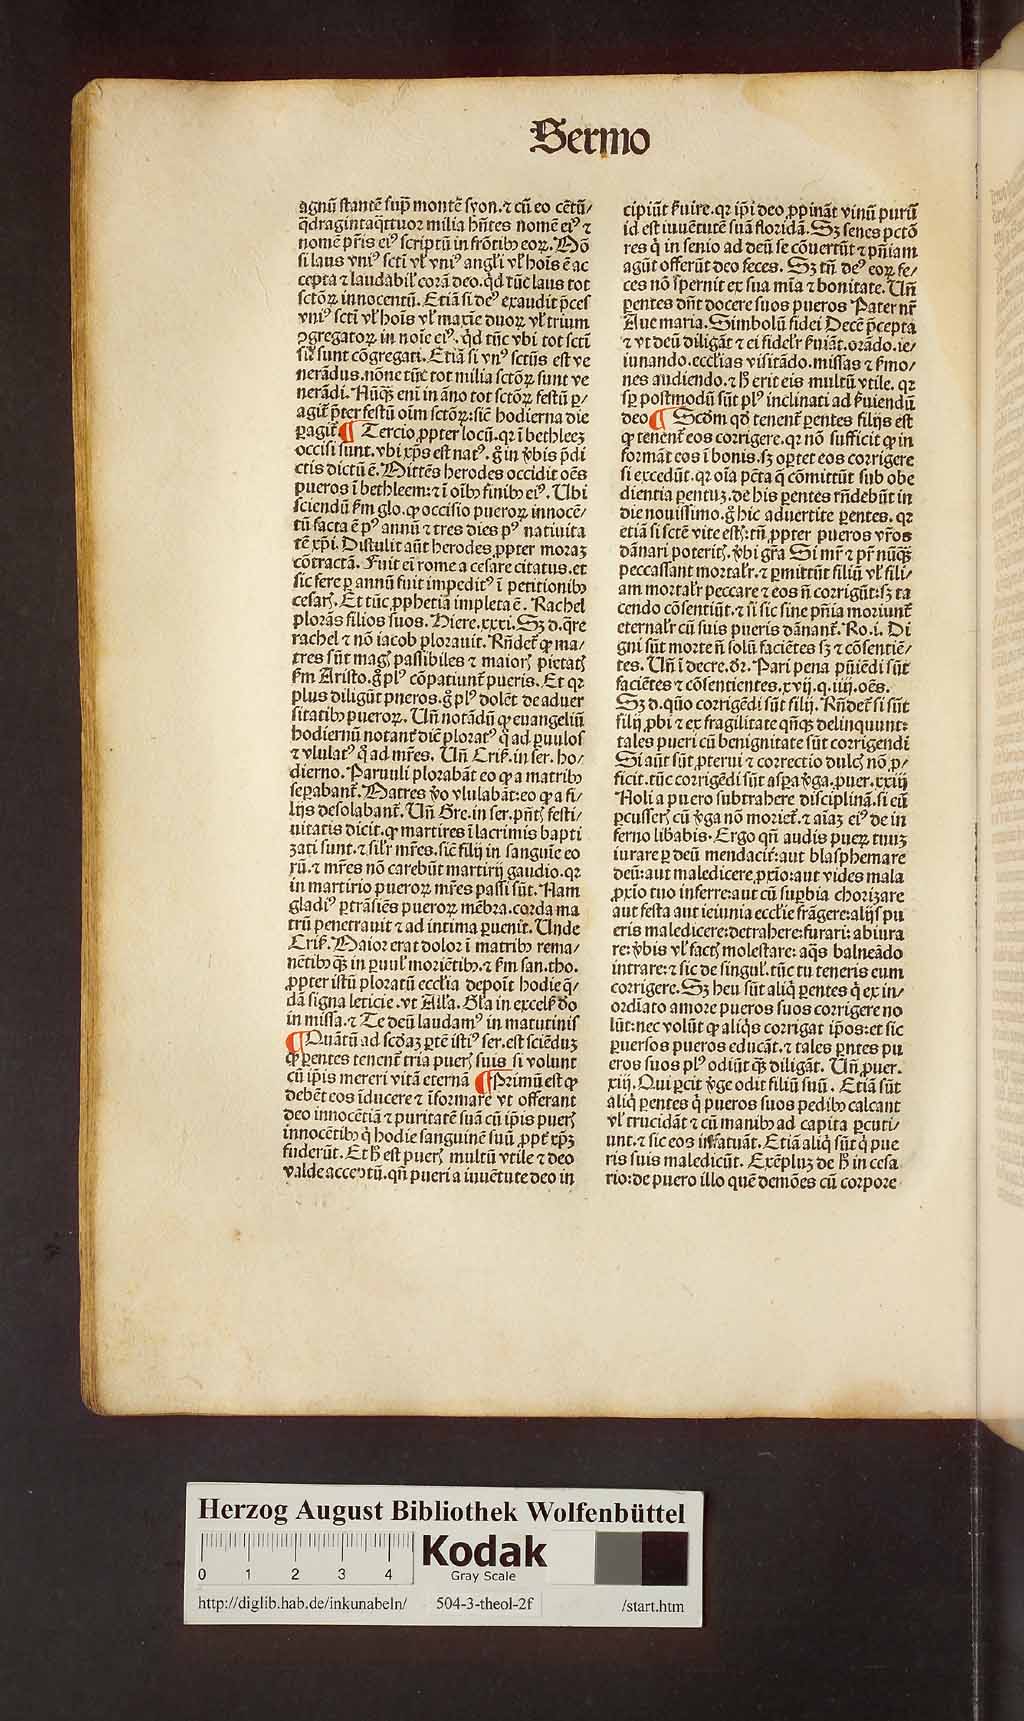 Sermo
agnū stantē sup̄ montē syon. ⁊ cū eo cētū/
q̄dragintaq̄ttuor milia hn̄tes nomē eiꝰ ⁊
nomē pr̄is eiꝰ scriptū in frōtibꝫ eoꝝ. Nō
si laus vniꝰ scti vl̓ vniꝰ angli vl̓ hoīs ē ac
cepta ⁊ laudabil̓ corā deo. q̄d tūc laus tot
sctōꝝ innocentū. Etiā si deꝰ exaudit p̄ces
vniꝰ scti vl̓ hoīs vl̓ maxīe duoꝝ vl̓ trium
ꝯgregatoꝝ in noīe eiꝰ. q̄d tūc vbi tot scti
sil̓ sunt cōgregati. Etiā si vnꝰ sctūs est ve
nerādus. nōme tūc tot milia sctōꝝ sunt ve
nerādi. Nūqꝫ enī in āno tot sctōꝝ festū p̱/
agit̄ p̄ter festū oīm sctōꝝ: sic̄ hodierna die
ꝑagit̄ ¶ Tercio ꝓpter locū. qꝛ ī bethleeꝫ
occisi sunt. vbi xp̄s est natꝰ. g̊ in v̄bis p̄di
ctis dictū ē. Mittēs herodes occidit oēs
pueros ī bethleem: ⁊ ī oībꝫ finibꝫ eiꝰ. Ubi
sciendū k̄m glo. ꝙ occisio pueroꝝ innocē/
tū facta ē pꝰ annū ⁊ tres dies pꝰ natiuita
tē xp̄i. Distulit aūt herodes ꝓpter moraꝫ
cōtractā. Fuit eī rome a cesare citatus. et
sic fere ꝑ annū fuit impeditꝰ ī petitionibꝫ
cesarꝭ. Et tūc ꝓphetia impleta ē. Rachel
plorās filios suos. Hiere. xxxi. Sꝫ d. q̄re
rachel ⁊ nō iacob plorauit. Rn̄det̄ ꝙ ma/
tres sūt magꝭ passibiles ⁊ maiorꝭ pietatꝭ
k̄m Aristo. g̊ plꝰ cōpatiunt̄ pueris. Et qꝛ
plus diligūt pneros. g̊ plꝰ dolēt de aduer
sitatibꝫ pueroꝝ. Un̄ notādū ꝙ euangeliū
hodiernū notant̄ diē ploratꝰ q̊ ad ꝑuulos
⁊ vlulatꝰ q̊ ad mr̄es. Un̄ Crisꝭ. in ser. ho/
dierno. Paruuli plorabāt eo ꝙ a matribꝫ
seꝑabant̄. Matres v̄o vlulabāt: eo ꝙ a fi/
lijs desolabant̄. Un̄ Gre. in ser. pn̄tꝭ festi/
uitatis dicit. ꝙ martires ī lacrimis bapti
zati sunt. ⁊ sil̓r mr̄es. sic̄ filij in sanguīe eo
rū. ⁊ mr̄es nō carebūt martirij gaudio. qꝛ
in martirio pueroꝝ mr̄es passi sūt. Nam
gladiꝰ ꝑtrāsiēs pueroꝝ mēbra. corda ma
trū penetrauit ⁊ ad intima ꝑuenit. Unde
Crisꝭ. Maior erat dolor ī matribꝫ rema/
nētibꝫ qꝫ in ꝑuul̓ moriētibꝫ. ⁊ k̄m san. tho.
ꝓpter istū ploratū eccl̓ia depoīt hodie q̄/
dā signa leticie. vt All̓a. Gl̓a in excelsꝭ dō
in missa. ⁊ Te deū laudamꝰ in matutinis
¶ Quātū ad scdaꝫ ꝑtē istiꝰ ser. est sciēduꝫ
ꝙ ꝑentes tenent̄ tria puerꝭ suis si volunt
cū ip̄is mereri vitā eternā ¶ Primū est ꝙ
debēt eos īducere ⁊ īformare vt offerant
deo innocētiā ⁊ puritatē suā cū ip̄is puerꝭ
innocētibꝫ q̇ hodie sanguinē suū ꝓpt̄ xp̄ꝫ
fuderūt. Et h̄ est puerꝭ multū vtile ⁊ deo
valde acceptū. qn̄ pueri a iuuētute deo in
cipiūt ẜuire. qꝛ ip̄i deo ꝓpināt vinū purū
id est iuuētutē suā floridā. Sꝫ senes pctō
res q̇ in senio ad deū se cōuertūt ⁊ pn̄iam
agūt offerūt deo feces. Sꝫ tn̄ deꝰ eoꝝ fe/
ces nō spernit ex sua mīa ⁊ bonitate. Un̄
ꝑentes dn̄t docere suos pueros Pater nr̄
Aue maria. Simbolū fidei Decē p̄cepta
⁊ vt deū diligāt ⁊ ei fidel̓r ẜuiāt. orādo. ie/
iunando. eccl̓ias visitādo. missas ⁊ ẜmo/
nes audiendo. ⁊ h̄ erit eis multū vtile. qꝛ
sp̱ postmodū sūt plꝰ inclinati ad ẜuiendū
deo ¶ Scdm qd̄ tenent̄ ꝑentes filijs est
ꝙ tenent̄ eos corrigere. qꝛ nō sufficit ꝙ in
formāt eos ī bonis. sꝫ oꝑtet eos corrigere
si excedūt. qꝛ oīa pc̄ta q̄ cōmittūt sub obe
dientia ꝑentuꝫ. de his ꝑentes rn̄debūt in
die nouissimo. g̊ hic aduertite ꝑentes. qꝛ
etiā si sctē vite estꝭ: tn̄ ꝓpter pueros vr̄os
dānari poteritꝭ. v̄bi gr̄a Si mr̄ ⁊ pr̄ nūqꝫ
peccassant mortal̓r. ⁊ ꝑmittūt filiū vl̓ fili/
am mortal̓r peccare ⁊ eos n̄ corrigūt: sꝫ ta
cendo cōsentiūt. ⁊ n̄ sic sine pn̄ia moriunt̄
eternal̓r cū suis pueris dānant̄. Ro. i. Di
gni sūt morte n̄ solū faciētes sꝫ ⁊ cōsentiē/
tes. Un̄ ī decre. dꝛ. Pari pena pūiēdi sūt
faciētes ⁊ cōsentientes. xvij. q. iiij. oēs.
Sꝫ d. quō corrigēdi sūt filij. Rn̄det̄ si sūt
filij ꝓbi ⁊ ex fragilitate qn̄qꝫ delinquunt:
tales pueri cū benignitate sūt corrigendi
Si aūt sūt ꝓterui ⁊ correctio dulcꝭ nō ꝓ/
ficit. tūc corrigēdi sūt asꝑa v̄ga. ꝓuer. xxiij
Noli a puero subtrahere disciplinā. si eū
ꝑcusserꝭ cū v̄ga nō moriet̄. ⁊ aīaꝫ eiꝰ de in
ferno libabis. Ergo qn̄ audis pueꝝ tuuꝫ
iurare ꝑ deū mendacit̄: aut blasphemare
deū: aut maledicere ꝓxīo: aut vides mala
ꝓxīo tuo inferre: aut cū sup̱bia chorizare
aut festa aut ieiunia eccl̓ie frāgere: alijs pu
eris maledicere: detrahere: furari: abiura
re: v̄bis vl̓ factꝭ molestare: aq̄s balneādo
intrare: ⁊ sic de singul̓. tūc tu teneris eum
corrigere. Sꝫ heu sūt aliq̄ ꝑentes q̇ ex in/
ordīato amore pueros suos corrigere no
lūt: nec volūt ꝙ aliq̄s corrigat ip̄os: et sic
ꝑuersos pueros educāt. ⁊ tales ꝑntes pu
eros suos plꝰ odiūt qꝫ diligāt. Un̄ ꝓuer.
xiij. Qui ꝑcit v̄ge odit filiū suū. Etiā sūt
aliq̄ ꝑentes q̇ pueros suos pedibꝫ calcant
vl̓ trucidāt ⁊ cū manibꝫ ad capita ꝑcuti/
unt. ⁊ sic eos infatuāt. Etiā aliq̄ sūt q̇ pue
ris suis maledicūt. Exēpluꝫ de h̄ in cesa
rio: de puero illo quē demōes cū corpore
Herzog August Bibliothek Wolfenbüttel
0 1 2 3 4
Kodak
Gray Scale
http://diglib.hab.de/inkunabeln/ 504-3-theol-2f /start.htm